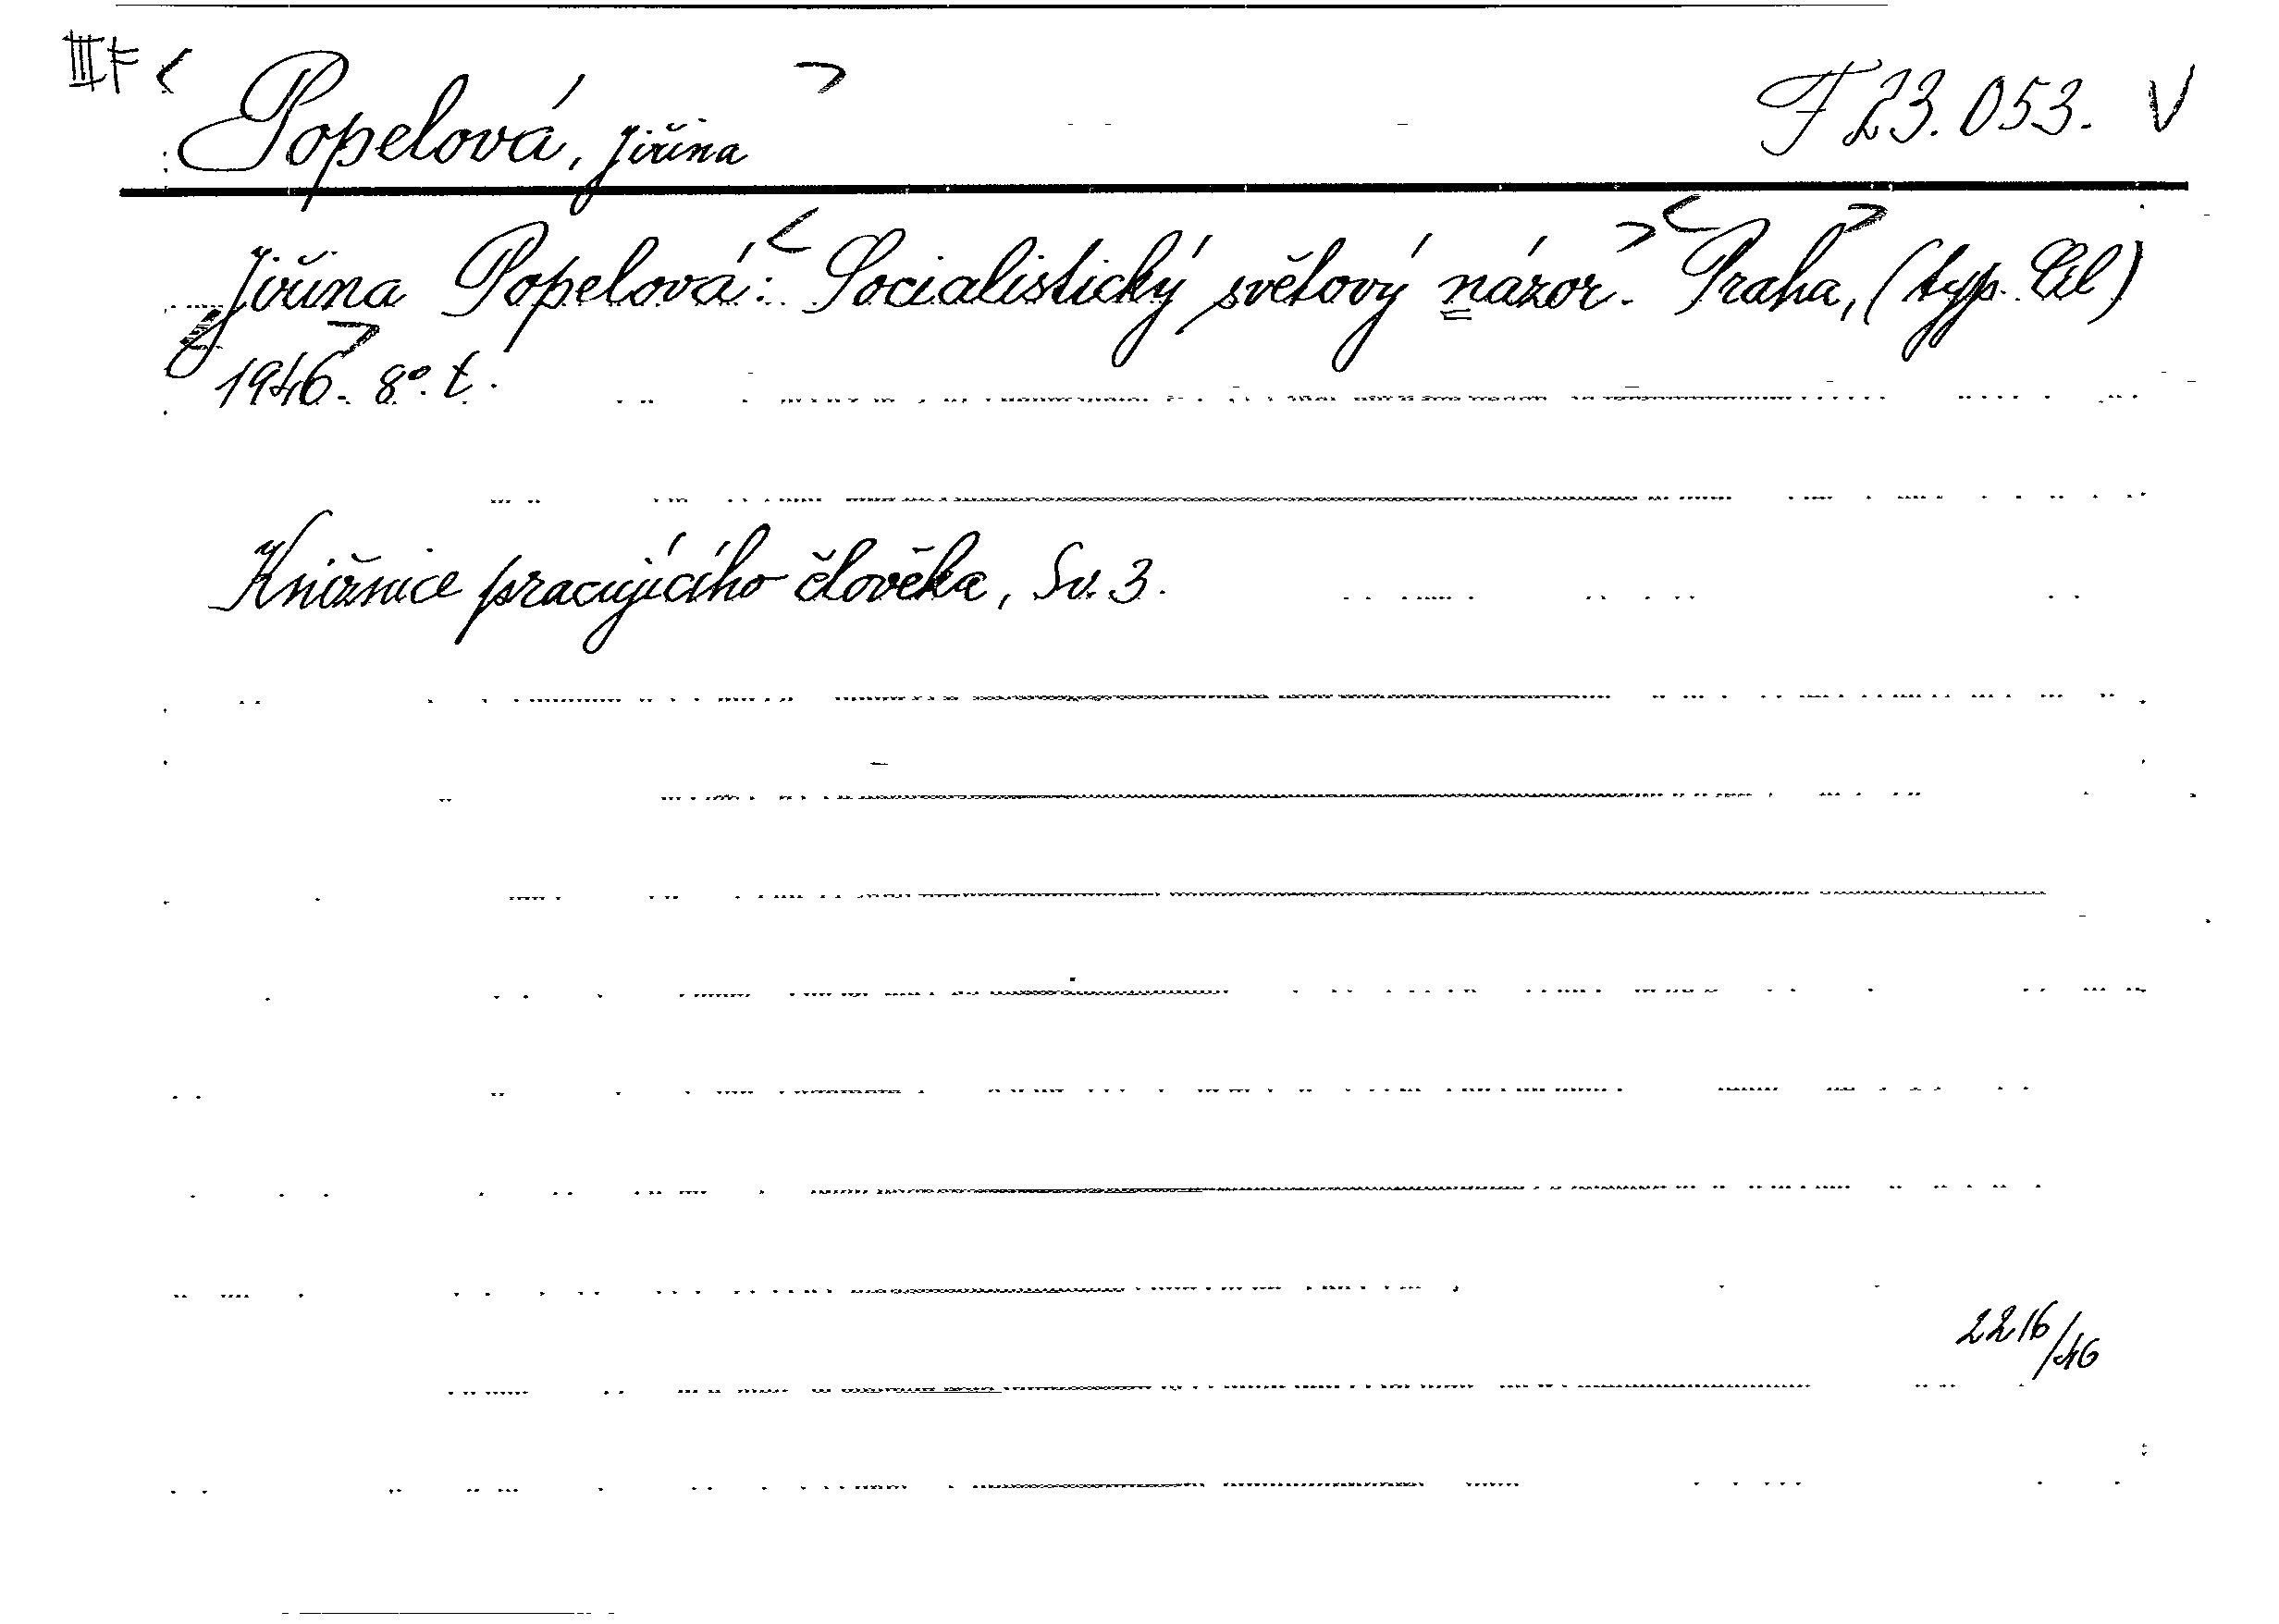 III F < Popelová, Jiřina > F 23.053. V
Jiřina Popelová: < Socialistický světový názor. > < Praha, > (typ. Cíl)
< 1946. > 8°. t.
Knižnice pracujícího člověka, Sv. 3.
2216/46